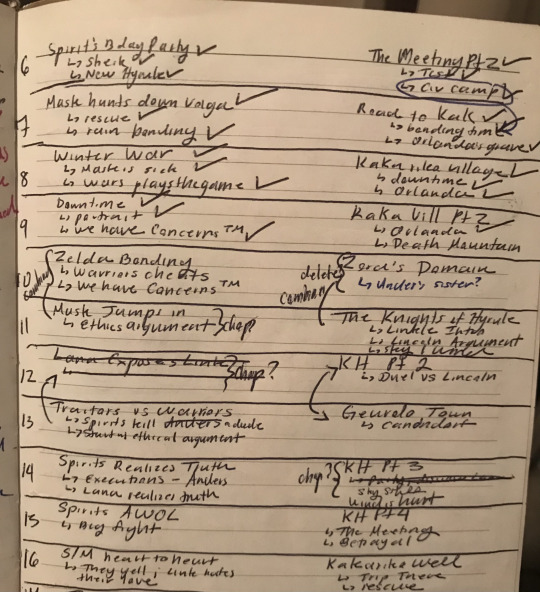 6
Spirit's Bday Party ✓
↳ Sheik ✓
↳ New Hyrule ✓
The Meeting Pt 2 ✓
↳ Test ✓
↳ Civ camp ✓
7
Mask hunts down Volga ✓
↳ rescue ✓
↳ rain bonding ✓
Road to Kak ✓
↳ bonding time ✓
↳ Orlanda's grave ✓
8
Winter War ✓
↳ Mask is sick ✓
↳ Wars plays the game ✓
Kakariko Village ✓
↳ downtime ✓
↳ Orlanda ✓
9
Downtime ✓
↳ portrait ✓
↳ We have Concerns™ ✓
Kaka Vill Pt 2
↳ Orlanda ✓
↳ Death Mountain
10
combine
Zelda Bonding
↳ Warriors cheats
↳ We have Concerns™
delete
combine
Zora's Domain
↳ Under's sister?
11
Mask Jumps in
↳ ethics argument
} chap
The Knights of Hyrule
↳ Linkle Intro
↳ Lincoln Argument
12
Lana Exposes Link
} chap?
KH Pt 2
↳ Duel vs Lincoln
13
Traitors vs Warriors
↳ Spirits kill Anders a dude
↳ Start of ethical argument
Gerudo Town
14
Spirits Realizes Truth
↳ Executions - Anders
↳ Lana realizes truth
chap?
KH Pt 3
hurt
15
Spirits AWOL
↳ Big fight
KH Pt 4
↳ The Meeting
↳ Betrayal
16
S/M heart to heart
↳ They yell; Link hates
their love
Kakariko Well
↳ Trip There
↳ rescue